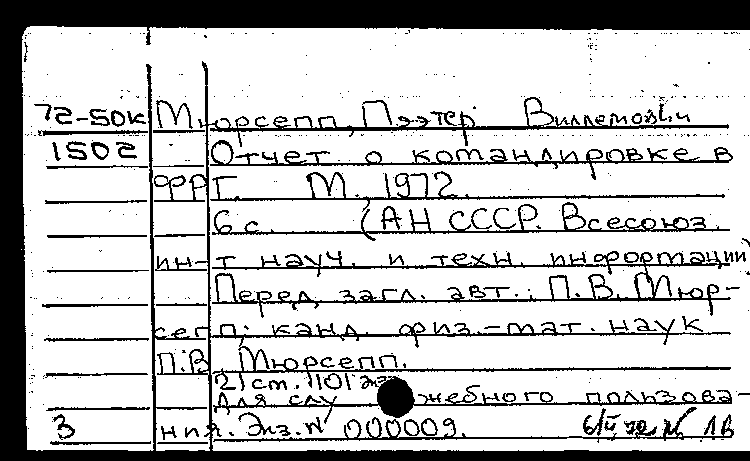 72-50к Мюрсепп, Пээтер Виллемович
1502 Отчет о командировке в
ФРГ. М., 1972.
6 с. (АН СССР. Всесоюз.
ин-т науч. и техн. информации)
Перед загл. авт.: П.В. Мюр-
сепп, канд. физ.-мат. наук
П.В. Мюрсепп.
21 см. 110 экз
Для служебного пользова-
3 ния. Экз. № 000009.